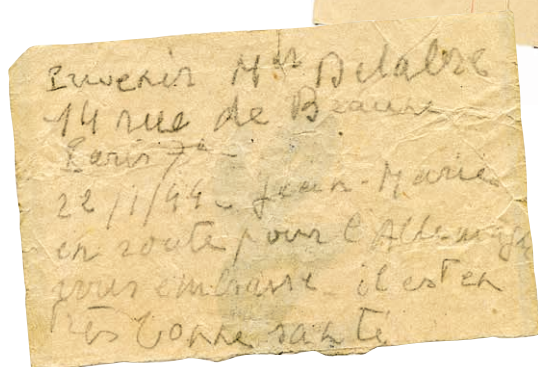 Prévenir Mr Delabre
14 rue de Beaune
Paris 7e
22/1/44 - Jean-Marie
en route pour l'Allemagne
vous embrasse - il est en
très bonne santé